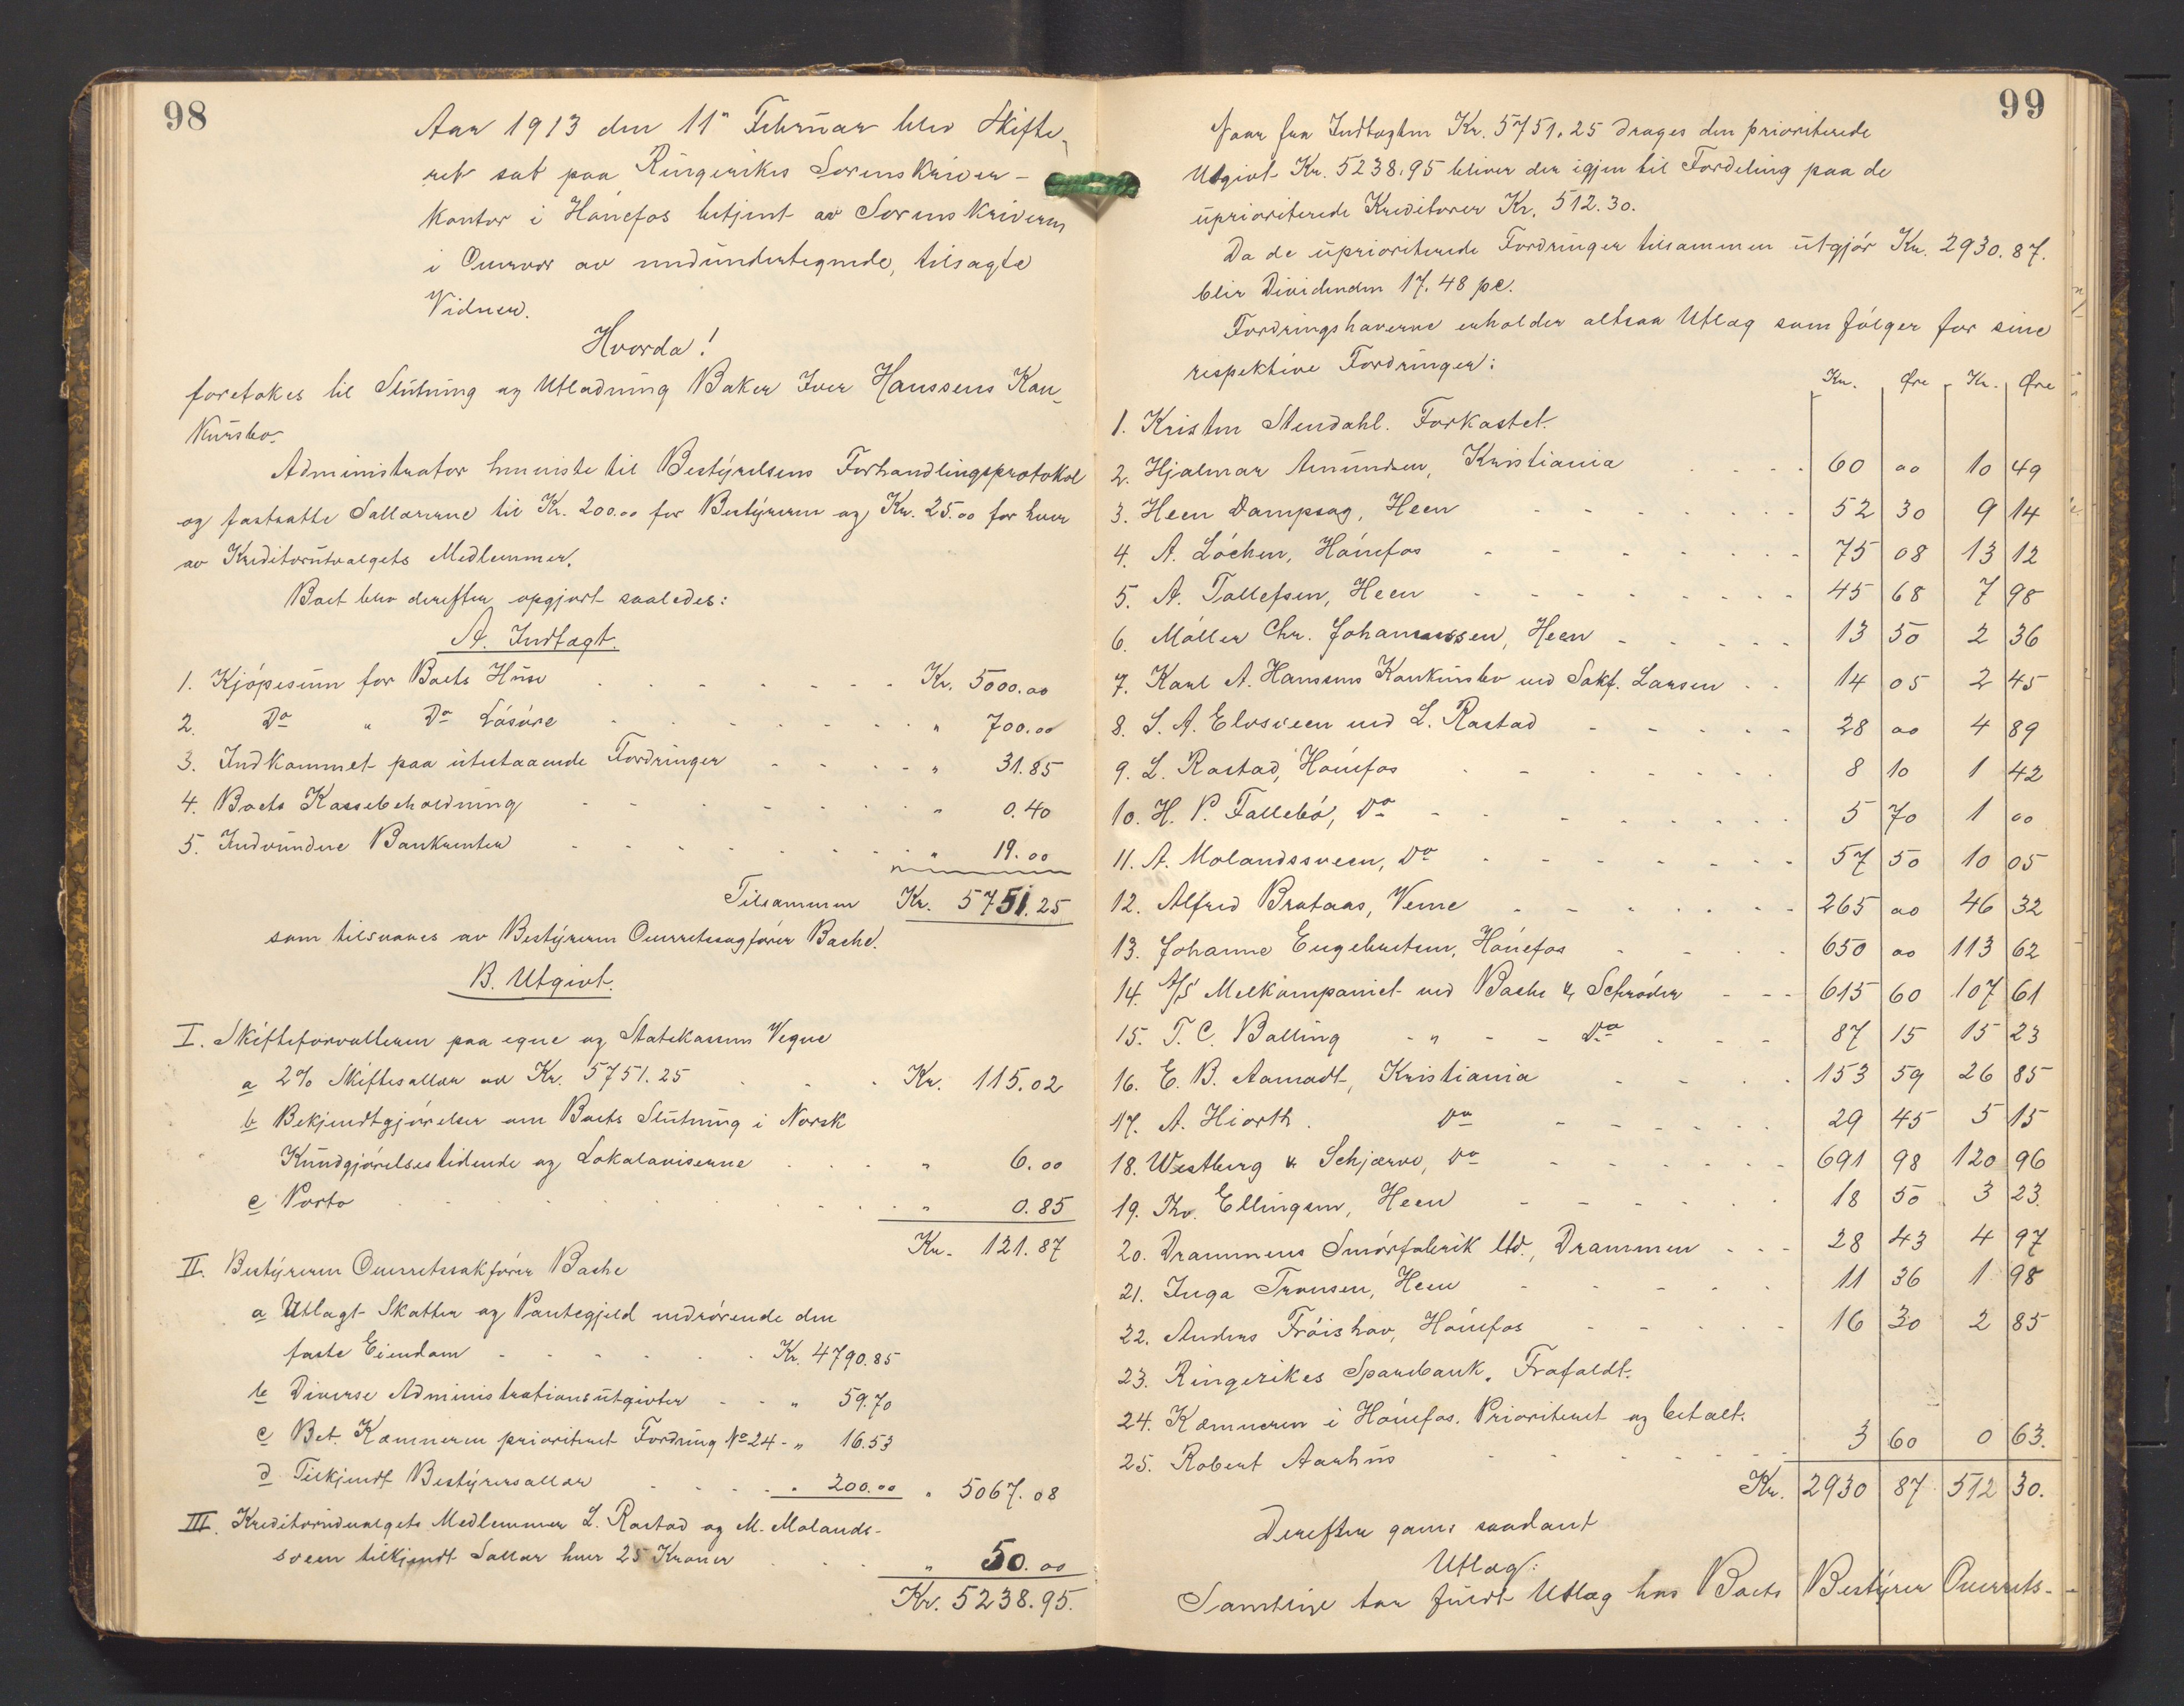 98
Aar 1913 den 11" Februar blev Skifte-
ret sat paa Ringerikes Sorenskriver-
kontor i Hönefos betjent av Sorenskriveren
i Overvær av medundertegnede, tilsagte
Vidner.
Hvorda!
foretokes til Slutning og Utlodning Baker Iver Hanssens Kon-
kursbo.
Administrator henviste til Bestyrelsens Forhandlingsprotokol
og fastsatte Sallærerne til Kr. 200.00 for Bestyreren og Kr. 25.00 for hver
av Kreditorutvalgets Medlemmer.
Boet blev derefter opgjort saaledes:
A. Indtægt.
1. Kjöpesum for Boets Huse - - - Kr. 5000.00
2. Do " Do Lösöre - - - " 700.00
3. Indkommet paa utestaaende Fordringer - - - " 31.85
4. Boets Kassebeholdning - - - " 0.40
5. Indvundne Bankrenter - - - " 19.00
Tilsammen Kr. 5751.25
som tilsvares av Bestyreren Overretssagförer Bache.
B. Utgivt.
I. Skifteforvalteren paa egne og Statskassens Vegne
a 2% Skiftesallær av Kr. 5751.25 - - - Kr. 115.02
b Bekjendtgjörelser om Boets Slutning i Norsk
Kundgjörelsestidende og Lokalaviserne - - - " 6.00
c Porto - - - " 0.85
Kr. 121.87
II. Bestyreren Overretssakförer Bache
a Utlagt Skatter og Pantegjeld vedrörende den
faste Eiendom - - - Kr. 4790.85
b Diverse Administrationsutgivter - - " 59.70
c Bet. Kæmneren prioritert Fordring No 24 - " 16.53
d Tilkjendt Bestyrersallær - - - " 200.00 " 5067.08
III. Kreditorudvalgets Medlemmer L. Rastad og M. Molands-
sveen tilkjendt Sallær hver 25 Kroner - - - " 50.00
Kr. 5238.95.
99
Naar fra Indtægten Kr. 5751.25 drages den prioriterede
Utgivt Kr. 5238.95 bliver der igjen til Fordeling paa de
uprioriterede Kreditorer Kr. 512.30.
Da de uprioriterede Fordringer tilsammen utgjör Kr. 2930.87.
blir Dividenden 17.48 pc.
Fordringshaverne erholder altsaa Utlæg som fölger for sine
respektive Fordringer:
Kr. Øre Kr. Øre
1. Kristen Stendahl. Forkastet.
2. Hjalmar Amundsen, Kristiania - - - 60 00 10 49
3. Heen Dampsag, Heen - - - 52 30 9 14
4. A. Löchen, Hönefos - - - 75 08 13 12
5. A. Tollefsen, Heen - - - 45 68 7 98
6. Möller Chr. Johannessen, Heen - - - 13 50 2 36
7. Karl A. Hansens Konkursbo ved Sakf. Larsen - - 14 05 2 45
8. S. A. Elvsveen ved L. Rastad - - - 28 00 4 89
9. L. Rastad, Hönefos - - - 8 10 1 42
10. H. P. Follebö, Do - - - 5 70 1 00
11. A. Molandssveen, Do - - - 57 50 10 05
12. Alfred Brataas, Veme - - - 265 00 46 32
13. Johanne Engebretsen, Hönefos - - - 650 00 113 62
14. A/S Melkompaniet ved Bache & Schröder - - - 615 60 107 61
15. T. C. Balling - " - - Do - - - 87 15 15 23
16. E. B. Aamodt, Kristiania - - - 153 59 26 85
17. A. Hiorth. Do - - - 29 45 5 15
18. Westberg & Schjærve, Do - - - 691 98 120 96
19. Thv. Ellingsen, Heen - - - 18 50 3 23.
20. Drammens Smörfabrik Ltd., Drammen - - - 28 43 4 97
21. Inga Tronsen, Heen - - - 11 36 1 98
22. Anders Fröishov, Hönefos - - - 16 30 2 85
23. Ringerikes Sparebank. Frafaldt.
24. Kæmneren i Hönefos. Prioriteret og betalt.
25. Robert Aarhus - - - 3 60 0 63.
Kr. 2930 87 512 30.
Derefter gaves saadant
Utlæg:
Samtlige faar fuldt Utlæg hos Boets Bestyrer Overrets-